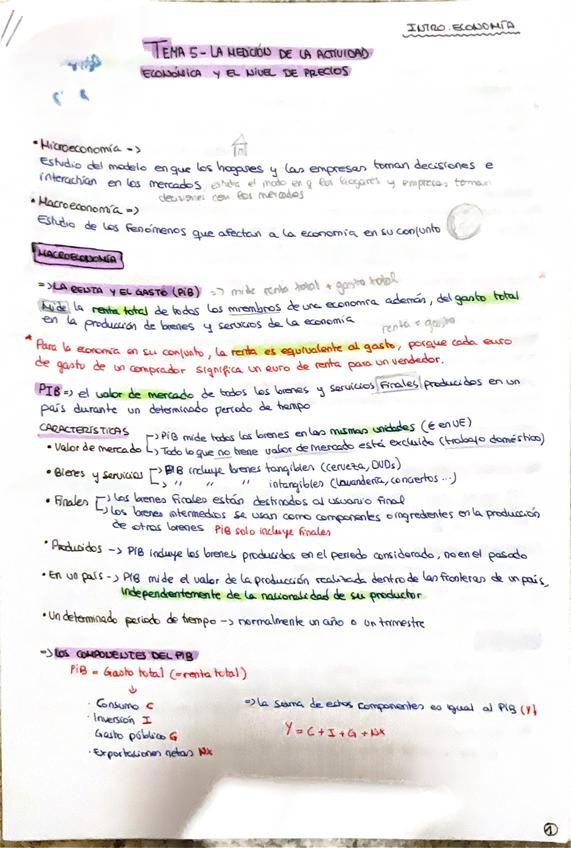 INTRO. ECONOMÍA
TEMA 5 - LA MEDICIÓN DE LA ACTIVIDAD
ECONÓMICA Y EL NIVEL DE PRECIOS
• Microeconomía =>
Estudio del modelo en que los hogares y las empresas toman decisiones e
interactúan en los mercados, estudia el modo en q los hogares y empresas toman
decisiones con los mercados
• Macroeconomía =>
Estudio de los fenómenos que afectan a la economía en su conjunto
MACROECONOMÍA
=> LA RENTA Y EL GASTO (PIB) => mide renta total + gasto total
Mide la renta total de todos los miembros de una economía además, del gasto total
en la producción de bienes y servicios de la economía
renta = gasto
* Para la economía en su conjunto, la renta es equivalente al gasto, porque cada euro
de gasto de un comprador significa un euro de renta para un vendedor.
PIB => el valor de mercado de todos los bienes y servicios finales producidos en un
país durante un determinado periodo de tiempo
CARACTERÍSTICAS
• Valor de mercado -> PIB mide todos los bienes en las mismas unidades (€ en UE)
-> Todo lo que no tiene valor de mercado está excluido (trabajo doméstico)
• Bienes y servicios -> PIB incluye bienes tangibles (cerveza, DVDs)
-> " " " intangibles (lavandería, conciertos ...)
• Finales -> los bienes finales están destinados al usuario final
-> los bienes intermedios se usan como componentes o ingredentes en la producción
de otros bienes PIB solo incluye finales
• Producidos -> PIB incluye los bienes producidos en el periodo considerado, no en el pasado
• En un país -> PIB mide el valor de la producción realizada dentro de las fronteras de un país,
independientemente de la nacionalidad de su productor
• Un determinado periodo de tiempo -> normalmente un año o un trimestre
=> LOS COMPONENTES DEL PIB
PIB = Gasto total (= renta total)
↓
· Consumo C
· Inversión I
Gasto público G
· Exportaciones netas NX
=> la suma de estos componentes es igual al PIB (Y)
Y = C + I + G + NX
1